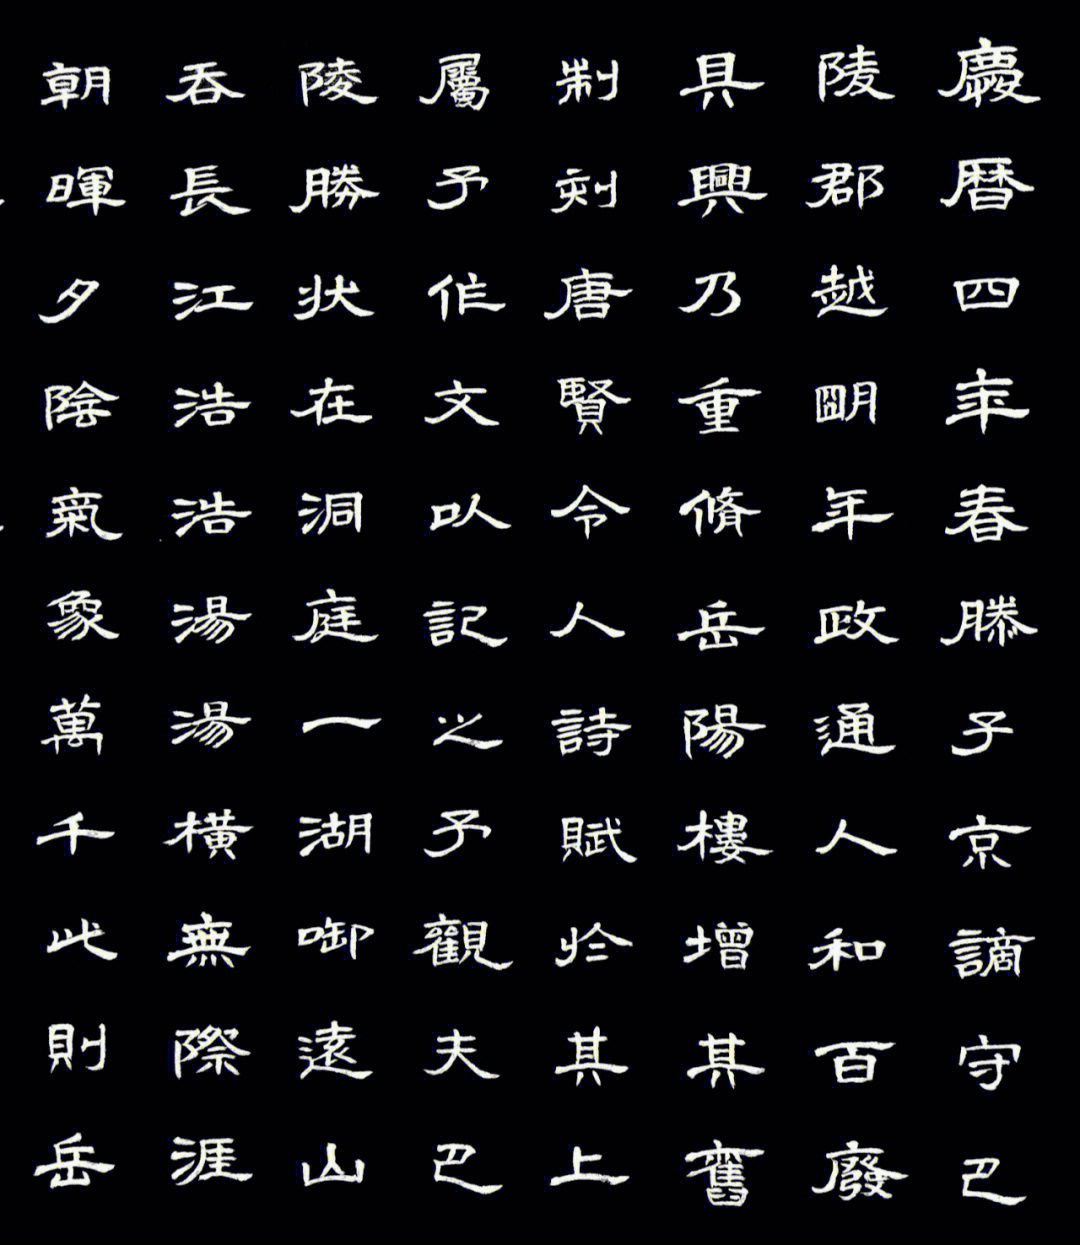 慶曆四年春滕子京謫守巴
陵郡越朙年政通人和百廢
具興乃重脩岳陽樓增其舊
制刻唐賢令人詩賦於其上
屬予作文以記之予觀夫巴
陵勝狀在洞庭一湖啣遠山
吞長江浩浩湯湯橫無際涯
朝暉夕陰氣象萬千此則岳